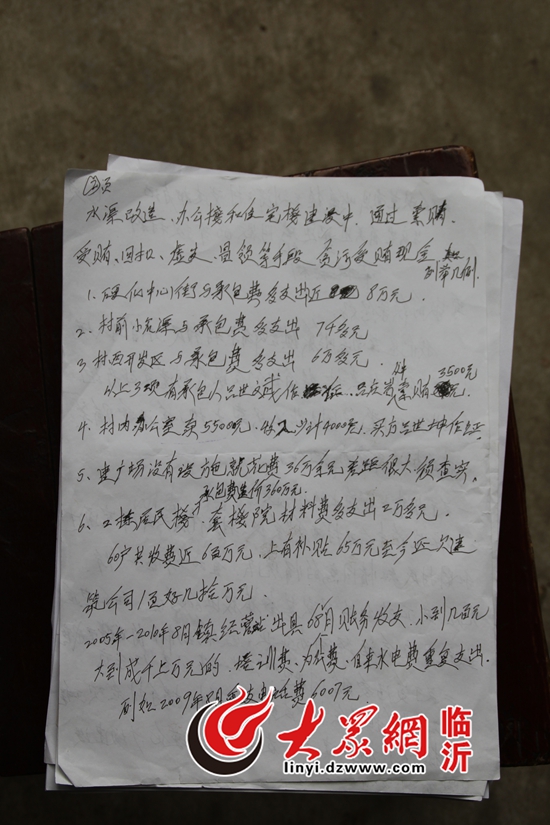 ③页
水渠改造、办公楼和住宅楼建设中,通过索贿
受贿、回扣、虚支、冒领等手段贪污受贿现金
列举几例
1、硬化中心街与承包费多支出近 8万元.
2、村前小花渠与承包费多支出 7千多元
3、村西开发区与承包费多支出 6万多元.
以上3项有承包人吕世文或 索贿 3500元
4、村内办公室卖5500元. 计4000元,买方吕世坤作证
5、建广场没有设施就花费36万余元差距很大须查实.
承包费造价360万元.
6、2栋居民楼、套楼院材料费多支出2万多元.
60户共收费近6百万元,上有补贴65万元至今还欠建
筑公司1百好几拾万元.
2005年-2010年8月镇经营站出具68月账务收支,小到几百元
大到成千上万元的 培训费、 自来水电费重复支出.
例如2009年 费6007元
大众網 临沂
linyi.dzwww.com